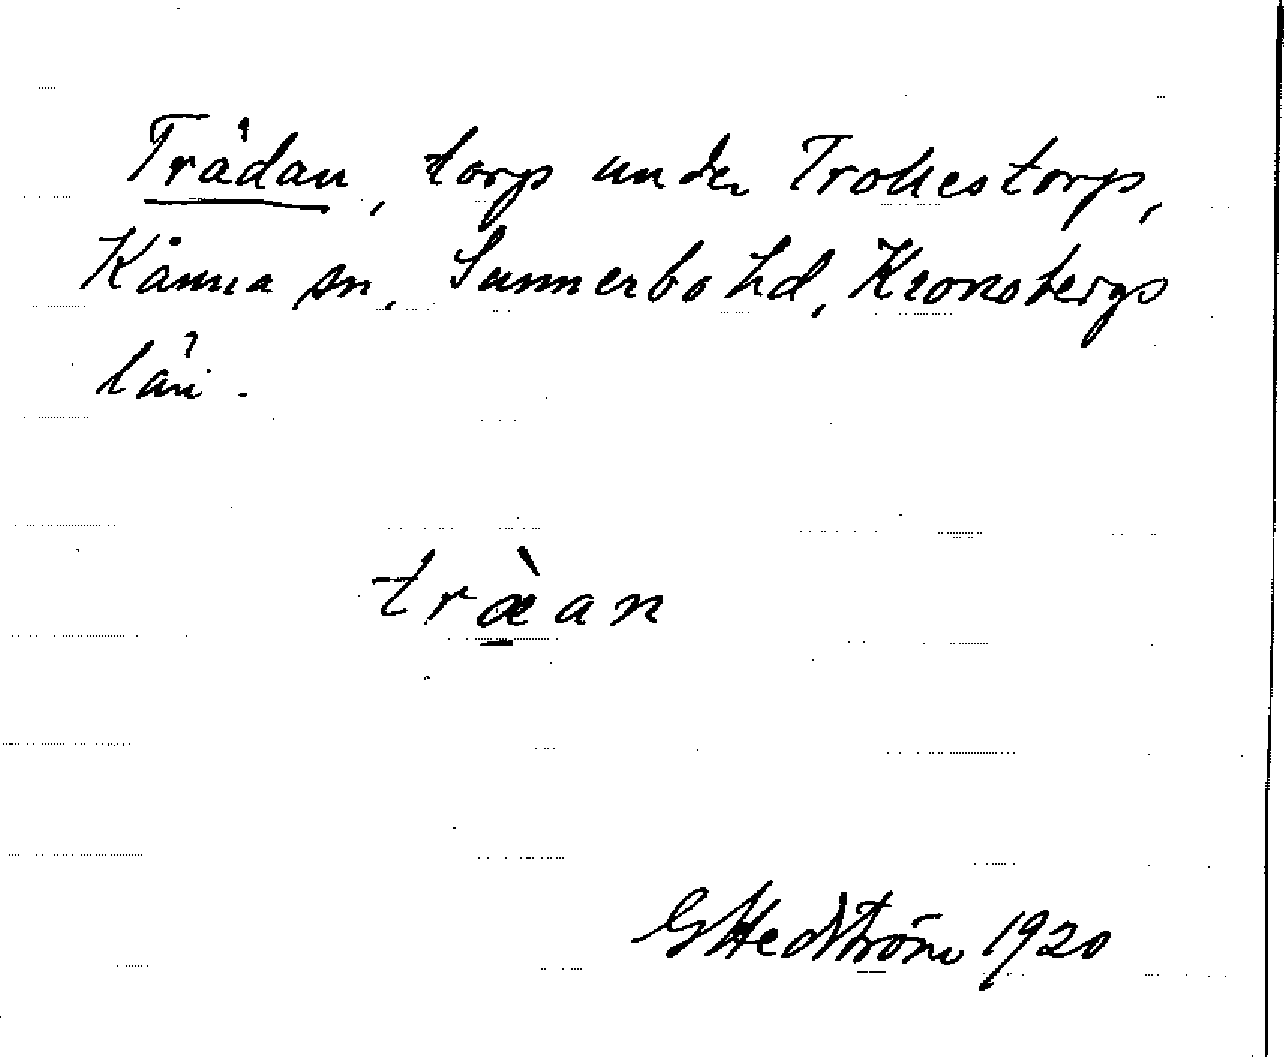 Trädan, torp under Trollestorp,
Kånna sn, Sunnerbo hd, Kronobergs
län.
træ̀an
G Hedström 1920